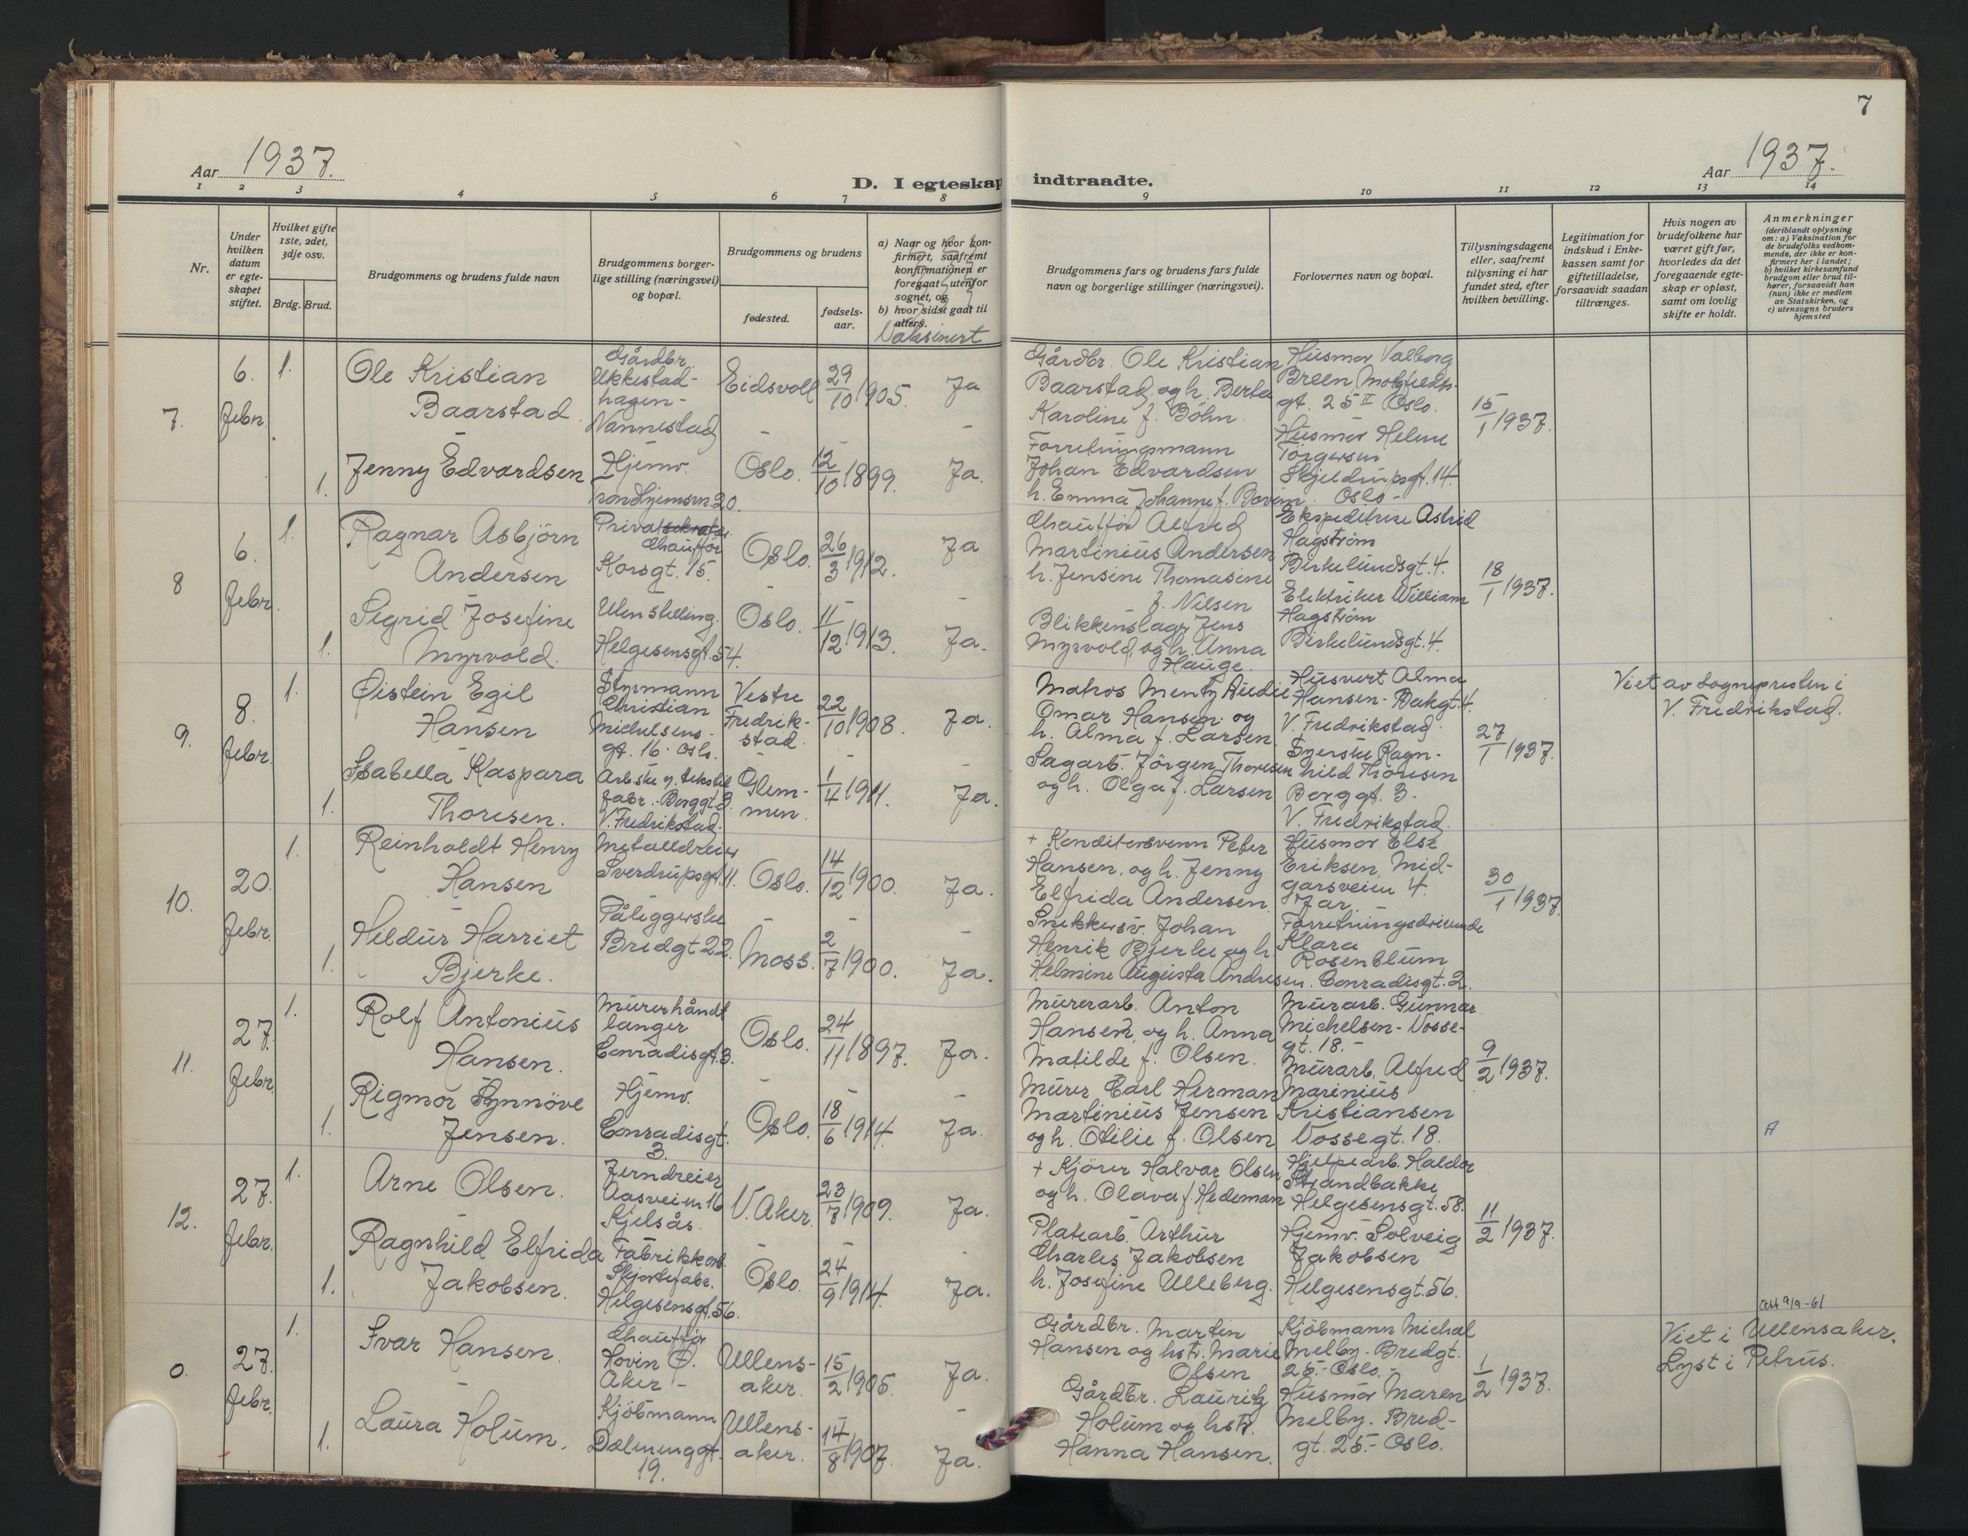 7
Aar 1937.
Aar 1937.
D. I egteskap indtraadte.
1 2 3 4 5 6 7 8 9 10 11 12 13 14
Nr.
Under hvilken datum er egteskapet stiftet.
Hvilket gifte 1ste, 2det, 3dje osv.
Brdg. Brud.
Brudgommens og brudens fulde navn
Brudgommens borgerlige stilling (næringsvei) og bopæl.
Brudgommens og brudens
fødested.
fødselsaar.
a) Naar og hvor konfirmert, saafremt konfirmationen er foregaat utenfor sognet, og
b) hvor sidst gaat til alters.
Vaksinert
Brudgommens fars og brudens fars fulde navn og borgerlige stillinger (næringsvei).
Forlovernes navn og bopæl.
Tillysningsdagene eller, saafremt tillysning ei har fundet sted, efter hvilken bevilling.
Legitimation for indskud i Enkekassen samt for giftetilladelse, forsaavidt saadan tiltrænges.
Hvis nogen av brudefolkene har været gift før, hvorledes da det foregaaende egteskap er opløst, samt om lovlig skifte er holdt.
Anmerkninger
(deriblandt oplysning om: a) Vaksination for de brudefolks vedkommende, der ikke er konfirmert her i landet; b) hvilket kirkesamfund brudgom eller brud tilhører, forsaavidt han (hun) ikke er medlem av Statskirken, og c) utensogns bruders hjemsted
7. 6. febr. 1.
Ole Kristian
Baarstad
Gårdbr.
Ukkestad-
hagen-
Nannestad
Eidsvoll 29/10 1905. Ja
Gårdbr. Ole Kristian
Baarstad, og h. Berta
Karoline f. Bøhn.
Husmor Valborg
Breen
gt. 25 II Oslo.
15/1 1937.
1.
Jenny Edvardsen
Hjemv.
Trondhjemsvn. 20.
Oslo. 12/10 1899. Ja.
Forretningsmann
Johan Edvardsen
h. Emma Johanne f.
Husmor Helene
Torgersen
Skjeldrupsgt. 14
Oslo-
8 6. febr. 1.
Ragnar Asbjörn
Andersen
Privatsekretær
Chauffør
Korsgt. 15.
Oslo. 26/3 1912. Ja
Chauffør Alfred
Martinius Andersen
h. Jensine Thomasine
f. Nilsen
Ekspeditrise Astrid
Hagstrøm
Birkelundsgt. 4.
18/1 1937.
1.
Sigrid Josefine
Myrvold.
Uten stilling.
Helgesensgt. 54.
Oslo. 11/12 1913. Ja.
Blikkenslager Jens
Myrvold, og h. Anna
Hauge.
Elektriker William
Hagstrøm
Birkelundsgt. 4.
9. 8. febr. 1.
Øistein Egil
Hansen
Styrmann
Christian
Michelsens-
gt. 16. Oslo.
Vestre
Fredrik-
stad.
22/10 1908. Ja.
Matros Mentz
Omar Hansen og
h. Alma f. Larsen
Husvert Alma
Hansen- Bakgt. 4.
V. Fredrikstad
27/1 1937.
Viet av sognepresten i
V. Fredrikstad.
1.
Isabella Kaspara
Thoresen.
fabr. Borggt. 3.
V. Fredrikstad.
Glem-
men.
1/4 1911. Ja.
Sagarb. Jørgen Thoresen
og h. Olga f. Larsen
Syerske Ragn-
hild Thoresen
Borggt. 3.
V. Fredrikstad.
10. 20. febr. 1.
Reinholdt Henry
Hansen
Metalldreier
Sverdrupsgt. 11.
Oslo. 14/12 1900. Ja.
+ Konditorsvenn Peter
Hansen, og h. Jenny
Elfrida Andersen
Husmor Else
Eriksen, Mid-
garsveien 4.
Jar.
30/1 1937.
1.
Hildur Harriet
Bjerke.
Påliggerske
Bredgt. 22.
Moss. 2/7 1900. Ja.
Snekkersv. Johan
Henrik Bjerke og h.
Helmine Augusta Andresen.
Forretningsdrivende
Klara
Rosenblum
Conradisgt. 2.
11. 27. febr. 1.
Rolf Antonius
Hansen.
Murerhåndt
langer
Conradisgt. 3.
Oslo. 24/11 1897. Ja.
Murerarb. Anton
Hansen, og h. Anna
Matilde f. Olsen.
Murarb. Gunnar
Michelsen- Vosse-
gt. 18.-
9/2 1937.
1.
Rigmor Synnöve
Jensen.
Hjemv.
Conradisgt.
3.
Oslo. 18/6 1914. Ja.
Murer Carl Herman
Martinius Jensen
og h. Otilie f. Olsen
Murarb. Alfred
Marinius
Kristiansen
Vossegt. 18.
12. 27. febr. 1.
Arne Olsen.
Jerndreier
Aasveien 16
Kjelsås.
V. Aker. 23/7 1909. Ja.
+ Kjörer Halvar Olsen
og h. Olava f. Hedeman
Hjelpearb. Haldor
Strandbakke
Helgesensgt. 58.
11/2 1937.
1.
Ragnhild Elfrida
Jakobsen.
Fabrikkarb.
Skjortefabr.
Helgesensgt. 56.
Oslo. 24/9 1914. Ja.
Platearb. Arthur
Charles Jakobsen
h. Josefine Ulleberg.
Hjemv. Solveig
Jakobsen
Helgesensgt. 56.
0. 27. febr. 1.
Ivar Hansen.
Chauffør
Hovin P.
Aker.-
Ullens-
aker.
15/2 1905. Ja.
Gårdbr. Martin
Hansen og hstr. Marie
Olsen
Kjöbmann Michal
Melby- Bredgt.
25- Oslo.-
1/2 1937.
9/9-61
Viet i Ullensaker.
Lyst i Petrus.
1.
Laura Holum.
Kjöbmann
Dælenenggt.
19.
Ullens-
aker.
14/8 1907. Ja.
Gårdbr. Lauritz
Holum og hstr.
Hanna Hansen.
Husmor Maren
Melby- Bred-
gt. 25- Oslo.